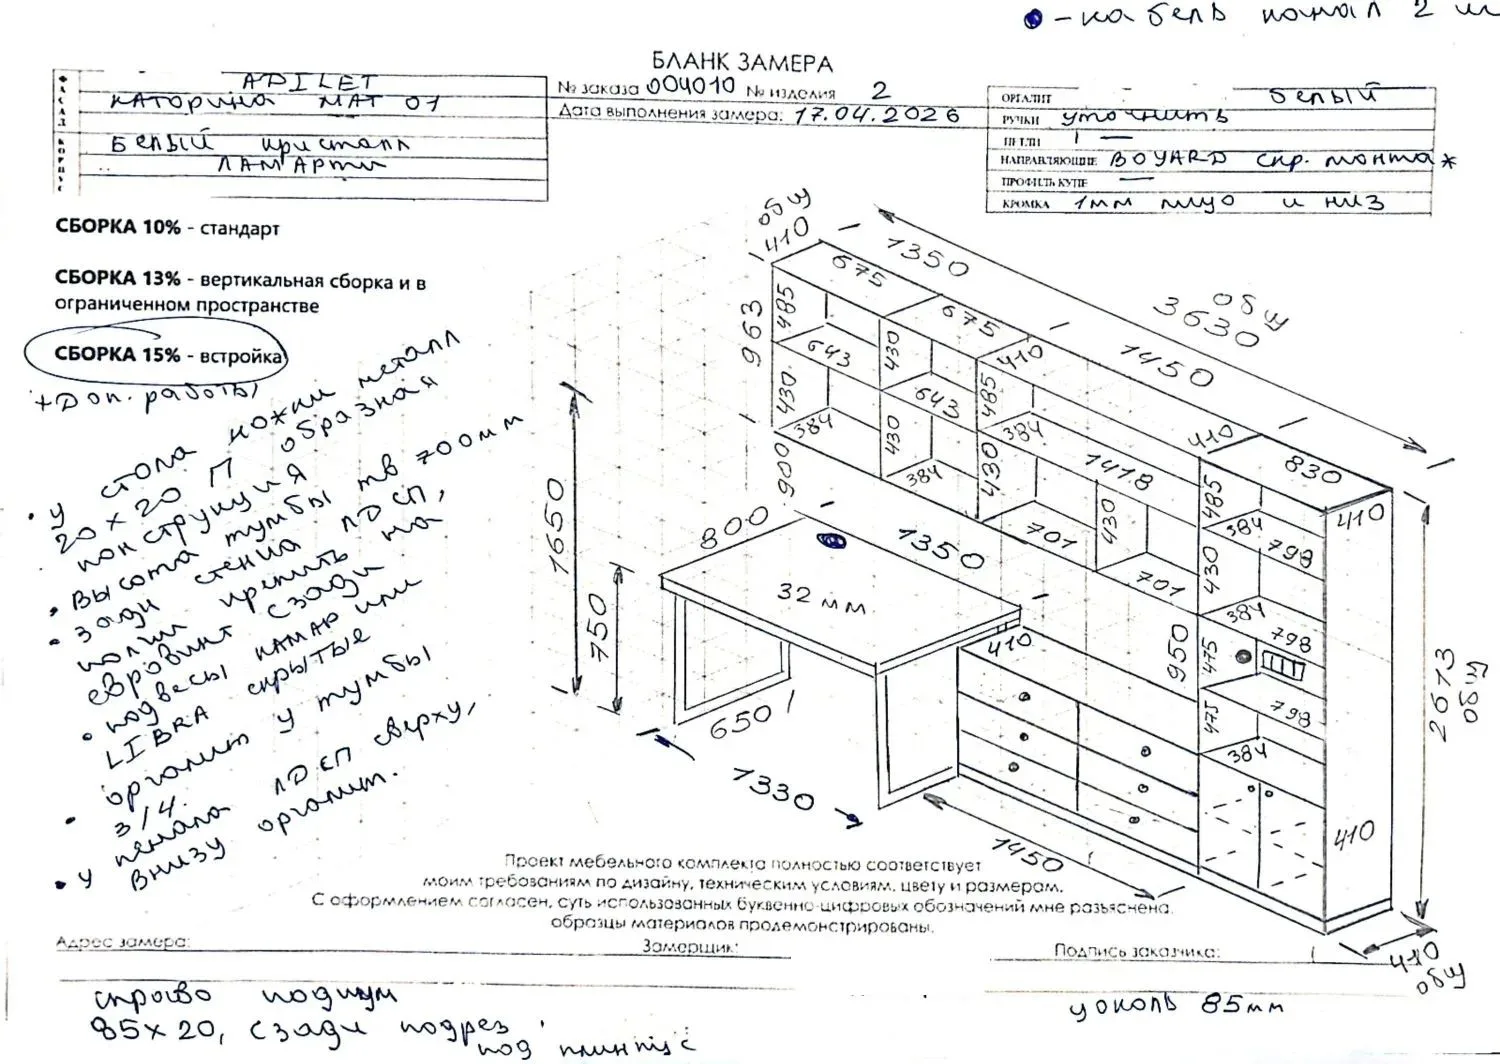 - кабель канал 2 ш
БЛАНК ЗАМЕРА
ФАСАД
ADILET
КАТОРИНА МАТ 01
КОРПУС
БЕЛЫЙ кристалл
ЛАМАРТИ
№ заказа 004010 № изделия 2
Дата выполнения замера: 17.04.2026
ОРГАЛИТ белый
РУЧКИ уточнить
ПЕТЛИ —
НАПРАВЛЯЮЩИЕ BOYARD скр. монтаж
ПРОФИЛЬ КУПЕ —
КРОМКА 1мм лицо и низ
СБОРКА 10% - стандарт
СБОРКА 13% - вертикальная сборка и в
ограниченном пространстве
СБОРКА 15% - встройка
+ Доп. работы
• у стола ножки металл
20×20 П образная
конструкция
• высота тумбы тв 700мм
• зади стенка ЛДСП,
полки крепить на
евровинт сзади
• подвесы КАМАР или
LIBRA скрытые
• оргалит у тумбы
3/4.
• у пенала ЛДСП сверху,
внизу оргалит.
410 общ
1350
3630 общ
1450
675
675
410
410
830
410
963
485
430
643
430
643
485
384
430
384
430
384
1418
430
701
701
900
485
384
798
430
384
798
950
475
798
475
384
1650
750
800
1350
32 мм
650
1330
410
1450
2613 общ
410
410 общ
Проект мебельного комплекта полностью соответствует
моим требованиям по дизайну, техническим условиям, цвету и размерам.
С оформлением согласен, суть использованных буквенно-цифровых обозначений мне разъяснена,
образцы материалов продемонстрированы.
Адрес замера:
Замерщик:
Подпись заказчика:
справо подиум
85×20, сзади подрез
под плинтус
цоколь 85мм